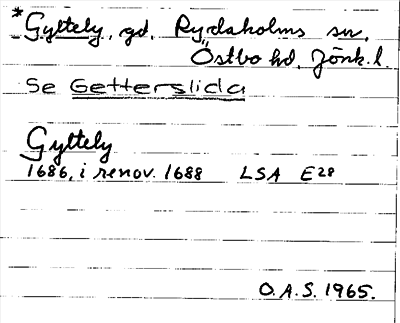 *Gyltely, gd. Rydaholms sn.
Östbo hd. Jönk. l.
Se Getterslida
Gyltely
1686, i renov. 1688 LSA E28
O.A.S. 1965.